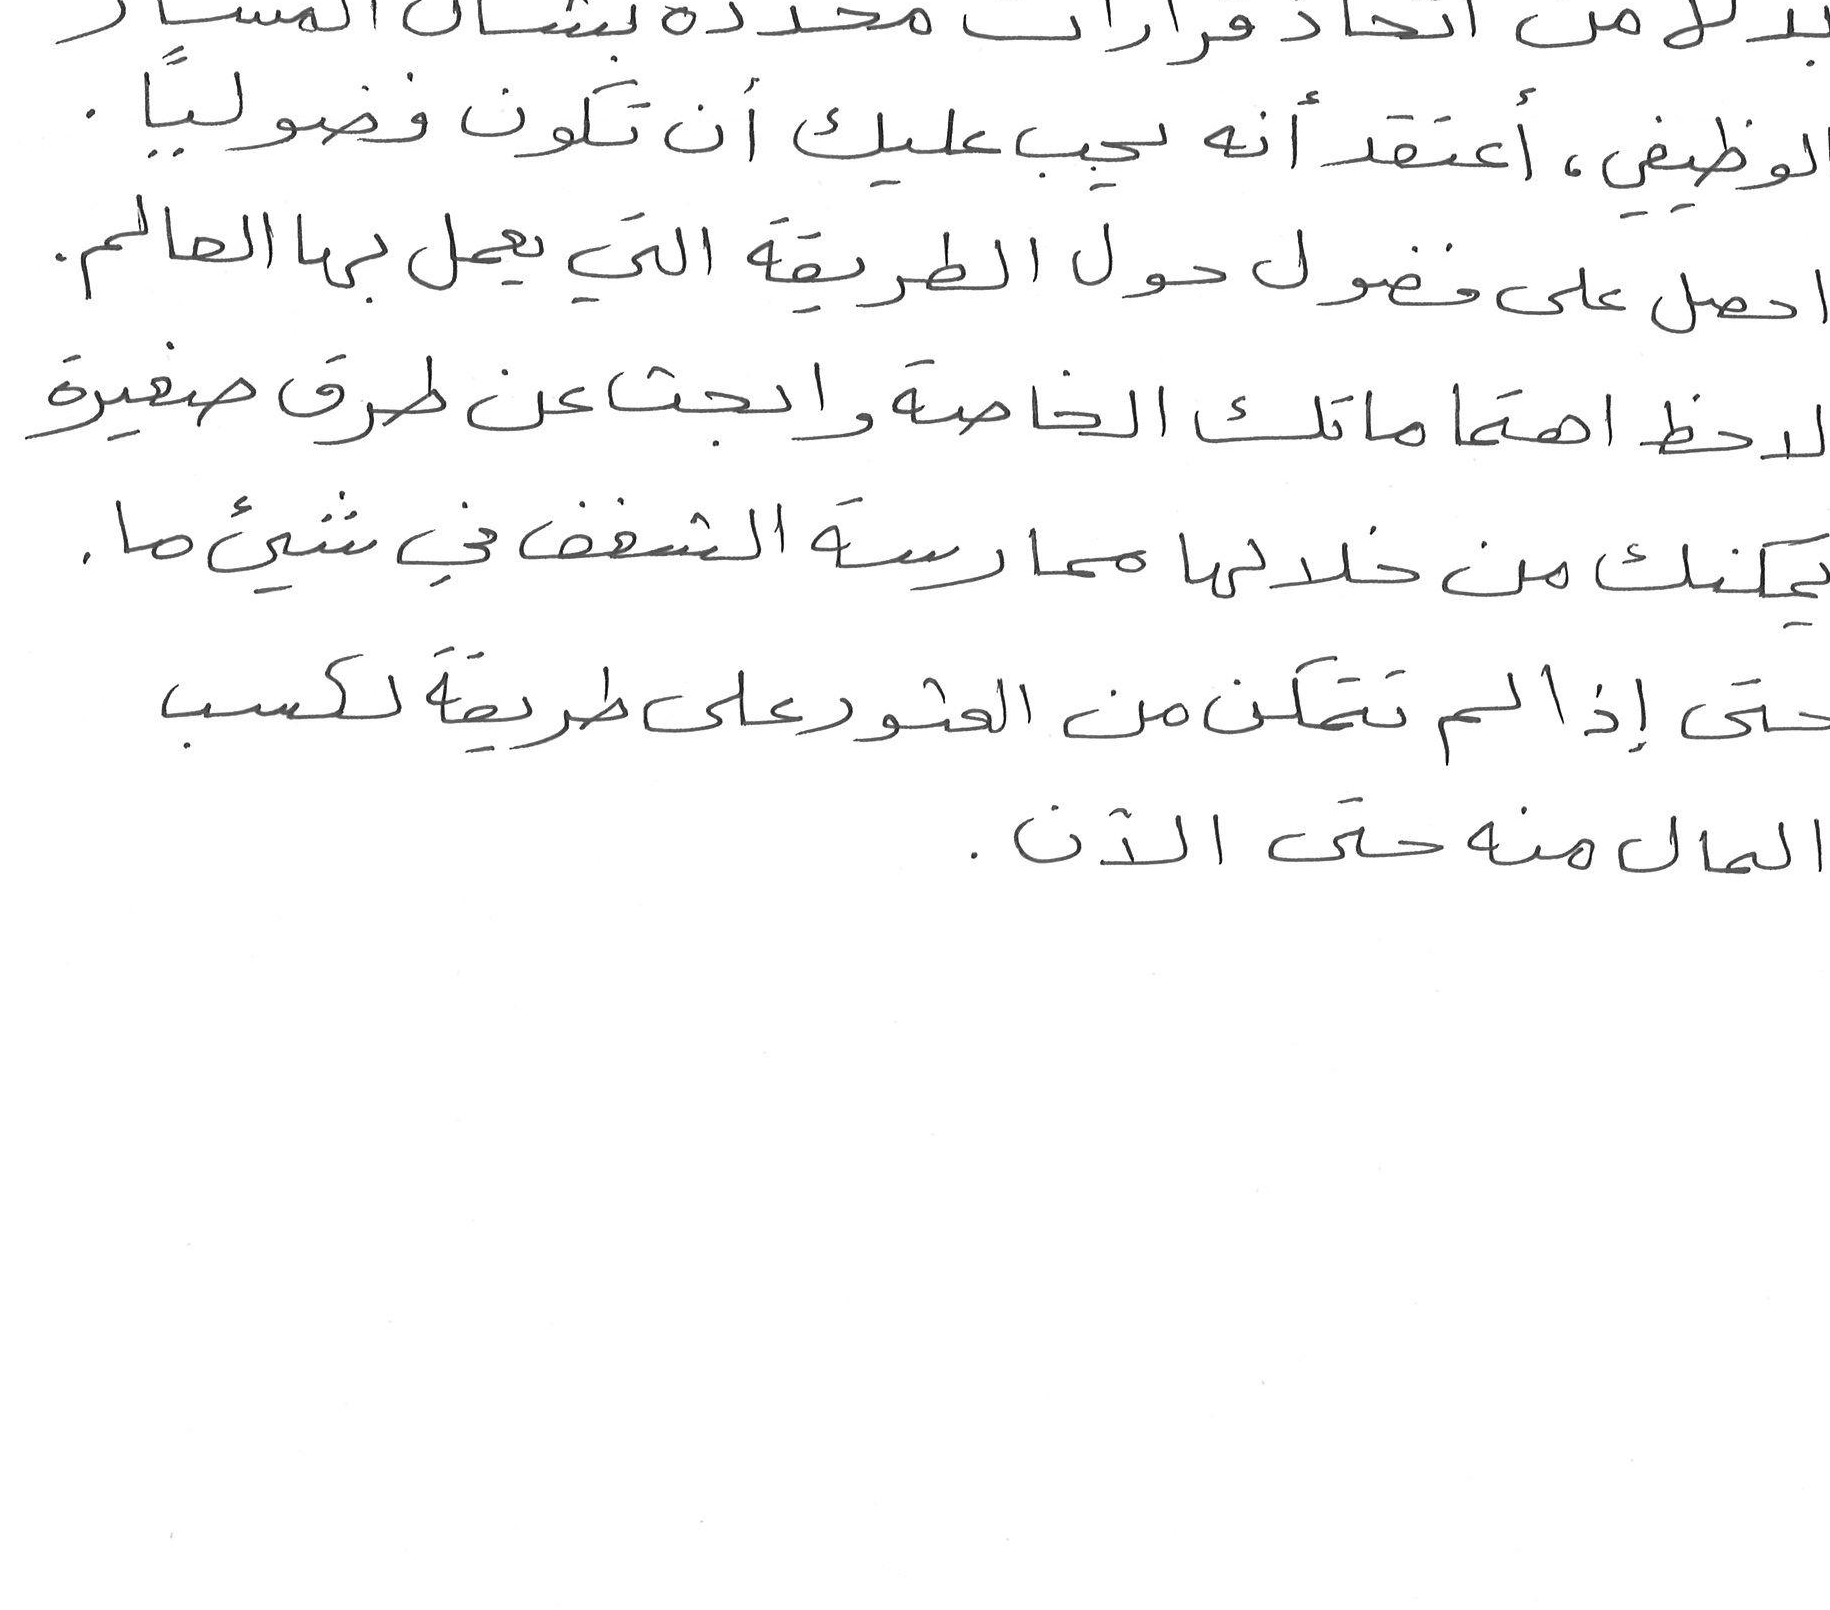 بدلا من اتخاذ قرارات محددة بشأن المسار
الوظيفي، أعتقد أنه يجب عليك أن تكون فضوليًا.
احصل على فضول حول الطريقة التي يعمل بها العالم.
لاحظ اهتماماتك الخاصة وابحث عن طرق صغيرة
يمكنك من خلالها ممارسة الشغف في شيئ ما.
حتى إذا لم تتمكن من العثور على طريقة لكسب
المال منه حتى الآن.